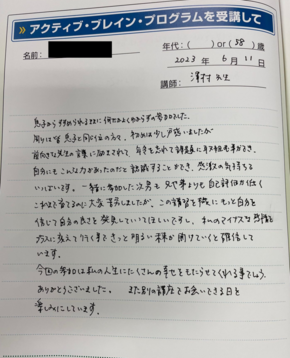 アクティブ・ブレイン・プログラムを受講して
名前：
年代：（ ）or（58）歳
2023年 6月 11日
講師：澤村先生
息子から すすめられるままに 何せよよく分からずの参加でした。
周りは皆 息子と同じ位の方々で、初めは少し戸惑いましたが
前向きな先生の言葉に励まされて、年を忘れて
自分にもこんな力があったのだと 認識することができ、感激の気持ちで
いっぱいです。一緒に参加した次男も 兄や弟よりも自己評価が低く
これまで育てるのに大変苦労しましたが、この講習を機に もっと自分を
信じて自分の良さを発見していってほしいですし、私のマイナスな思考も
方へ 変えて行く事で きっと明るい未来が開けていくと確信して
います。
今回の参加は私の人生にたくさんの幸せをもたらせてくれる事でしょう。
ありがとうございました。また別の講座でお会いできる日を
楽しみにしています。